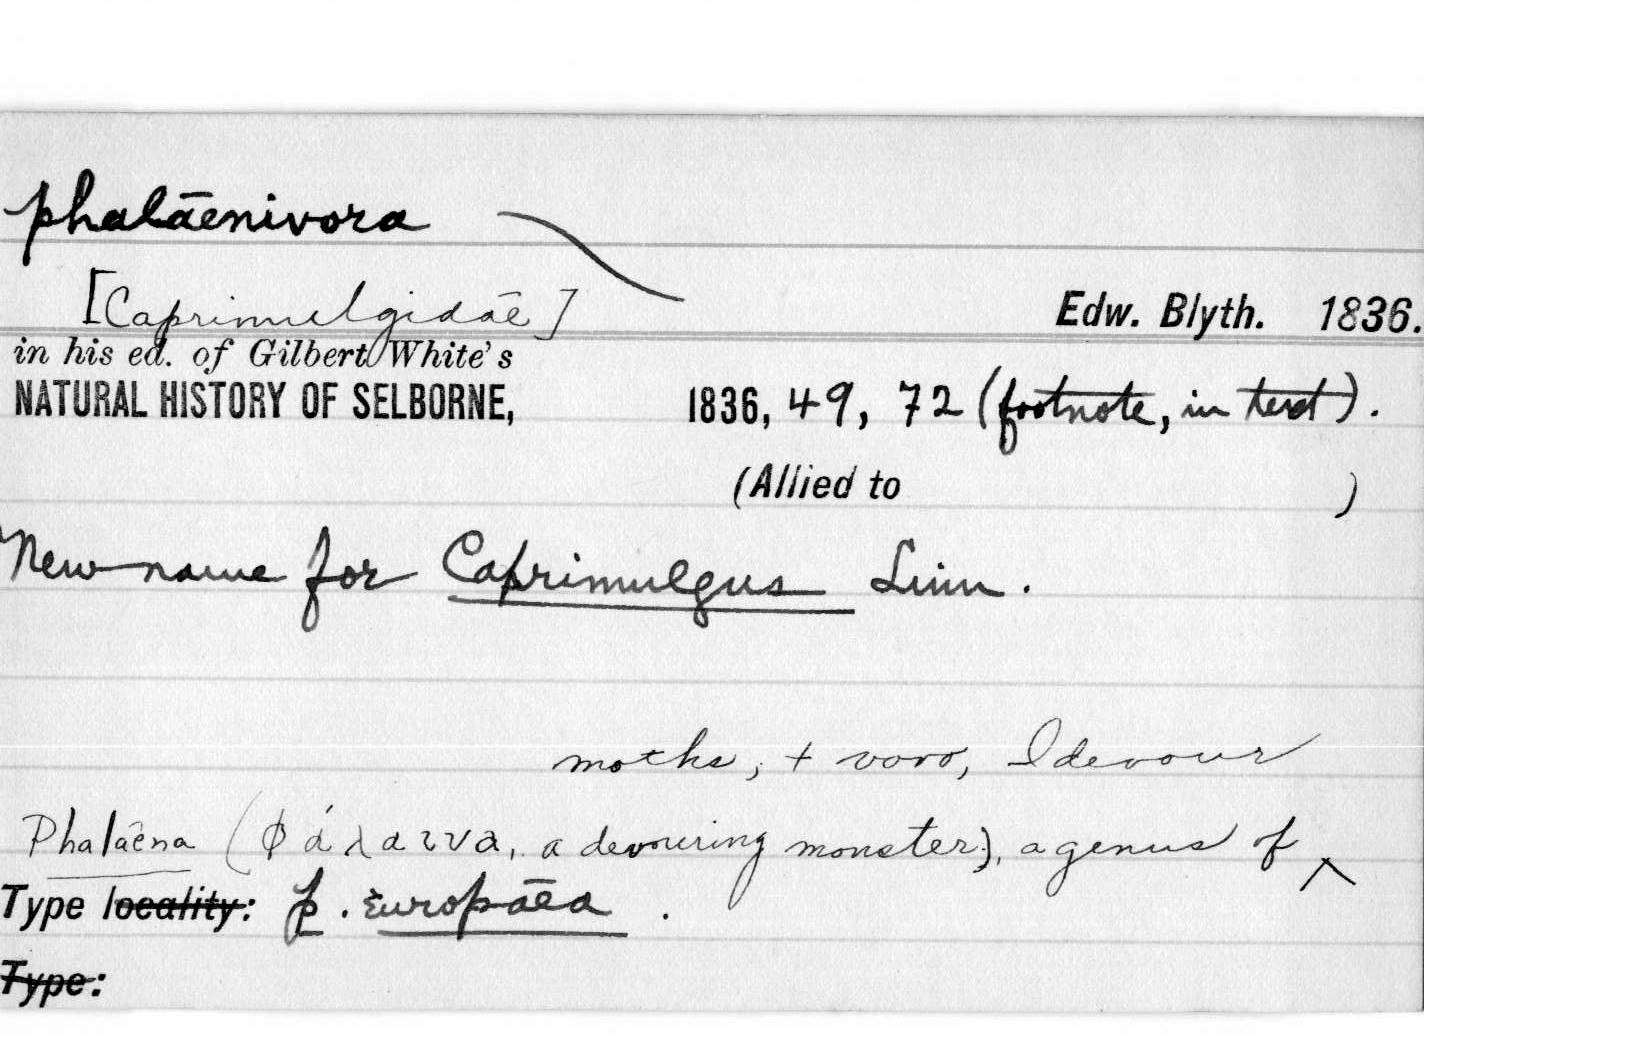 phalāenivora
[Caprimulgidāe]
Edw. Blyth. 1836.
in his ed. of Gilbert White's
NATURAL HISTORY OF SELBORNE, 1836, 49, 72 (footnote, in text).
(Allied to )
New name for Caprimulgus Linn.
moths, + voro, I devour
Phalāena (φάλαινα, a devouring monster), a genus of ^
Type locality: p. europāea.
Type: